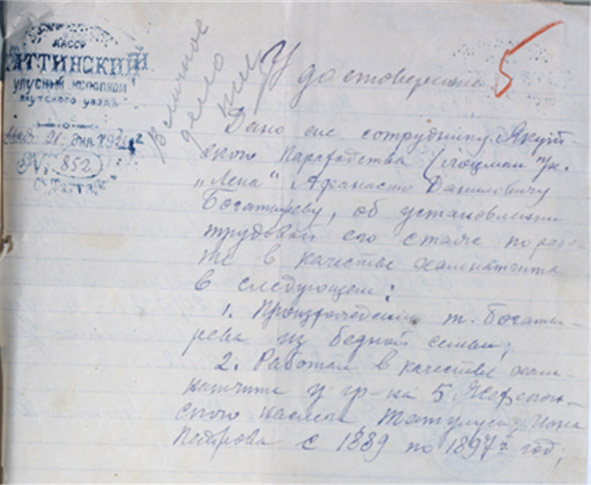 ЯАССР
ТАТТИНСКИЙ
УЛУСНЫЙ ИСПОЛКОМ
ЯКУТСКОГО УЕЗДА
21
№ 852
В личное
дело
5
Удостоверение
Дано сие сотруднику Якут-
ского Параходства (лоцман
"Лена" Афанасию Даниловичу
Богатыреву, об установлении
трудовой его стаже по рабо-
те в качестве хамначчита
в следующем:
1. Произхождения т. Богаты-
рева из бедной семьи;
2. Работал в качестве хам-
наччита у гр-на 5
ского наслега, Тат. улуса, Иона
Петрова с 1889 по 1897 год;